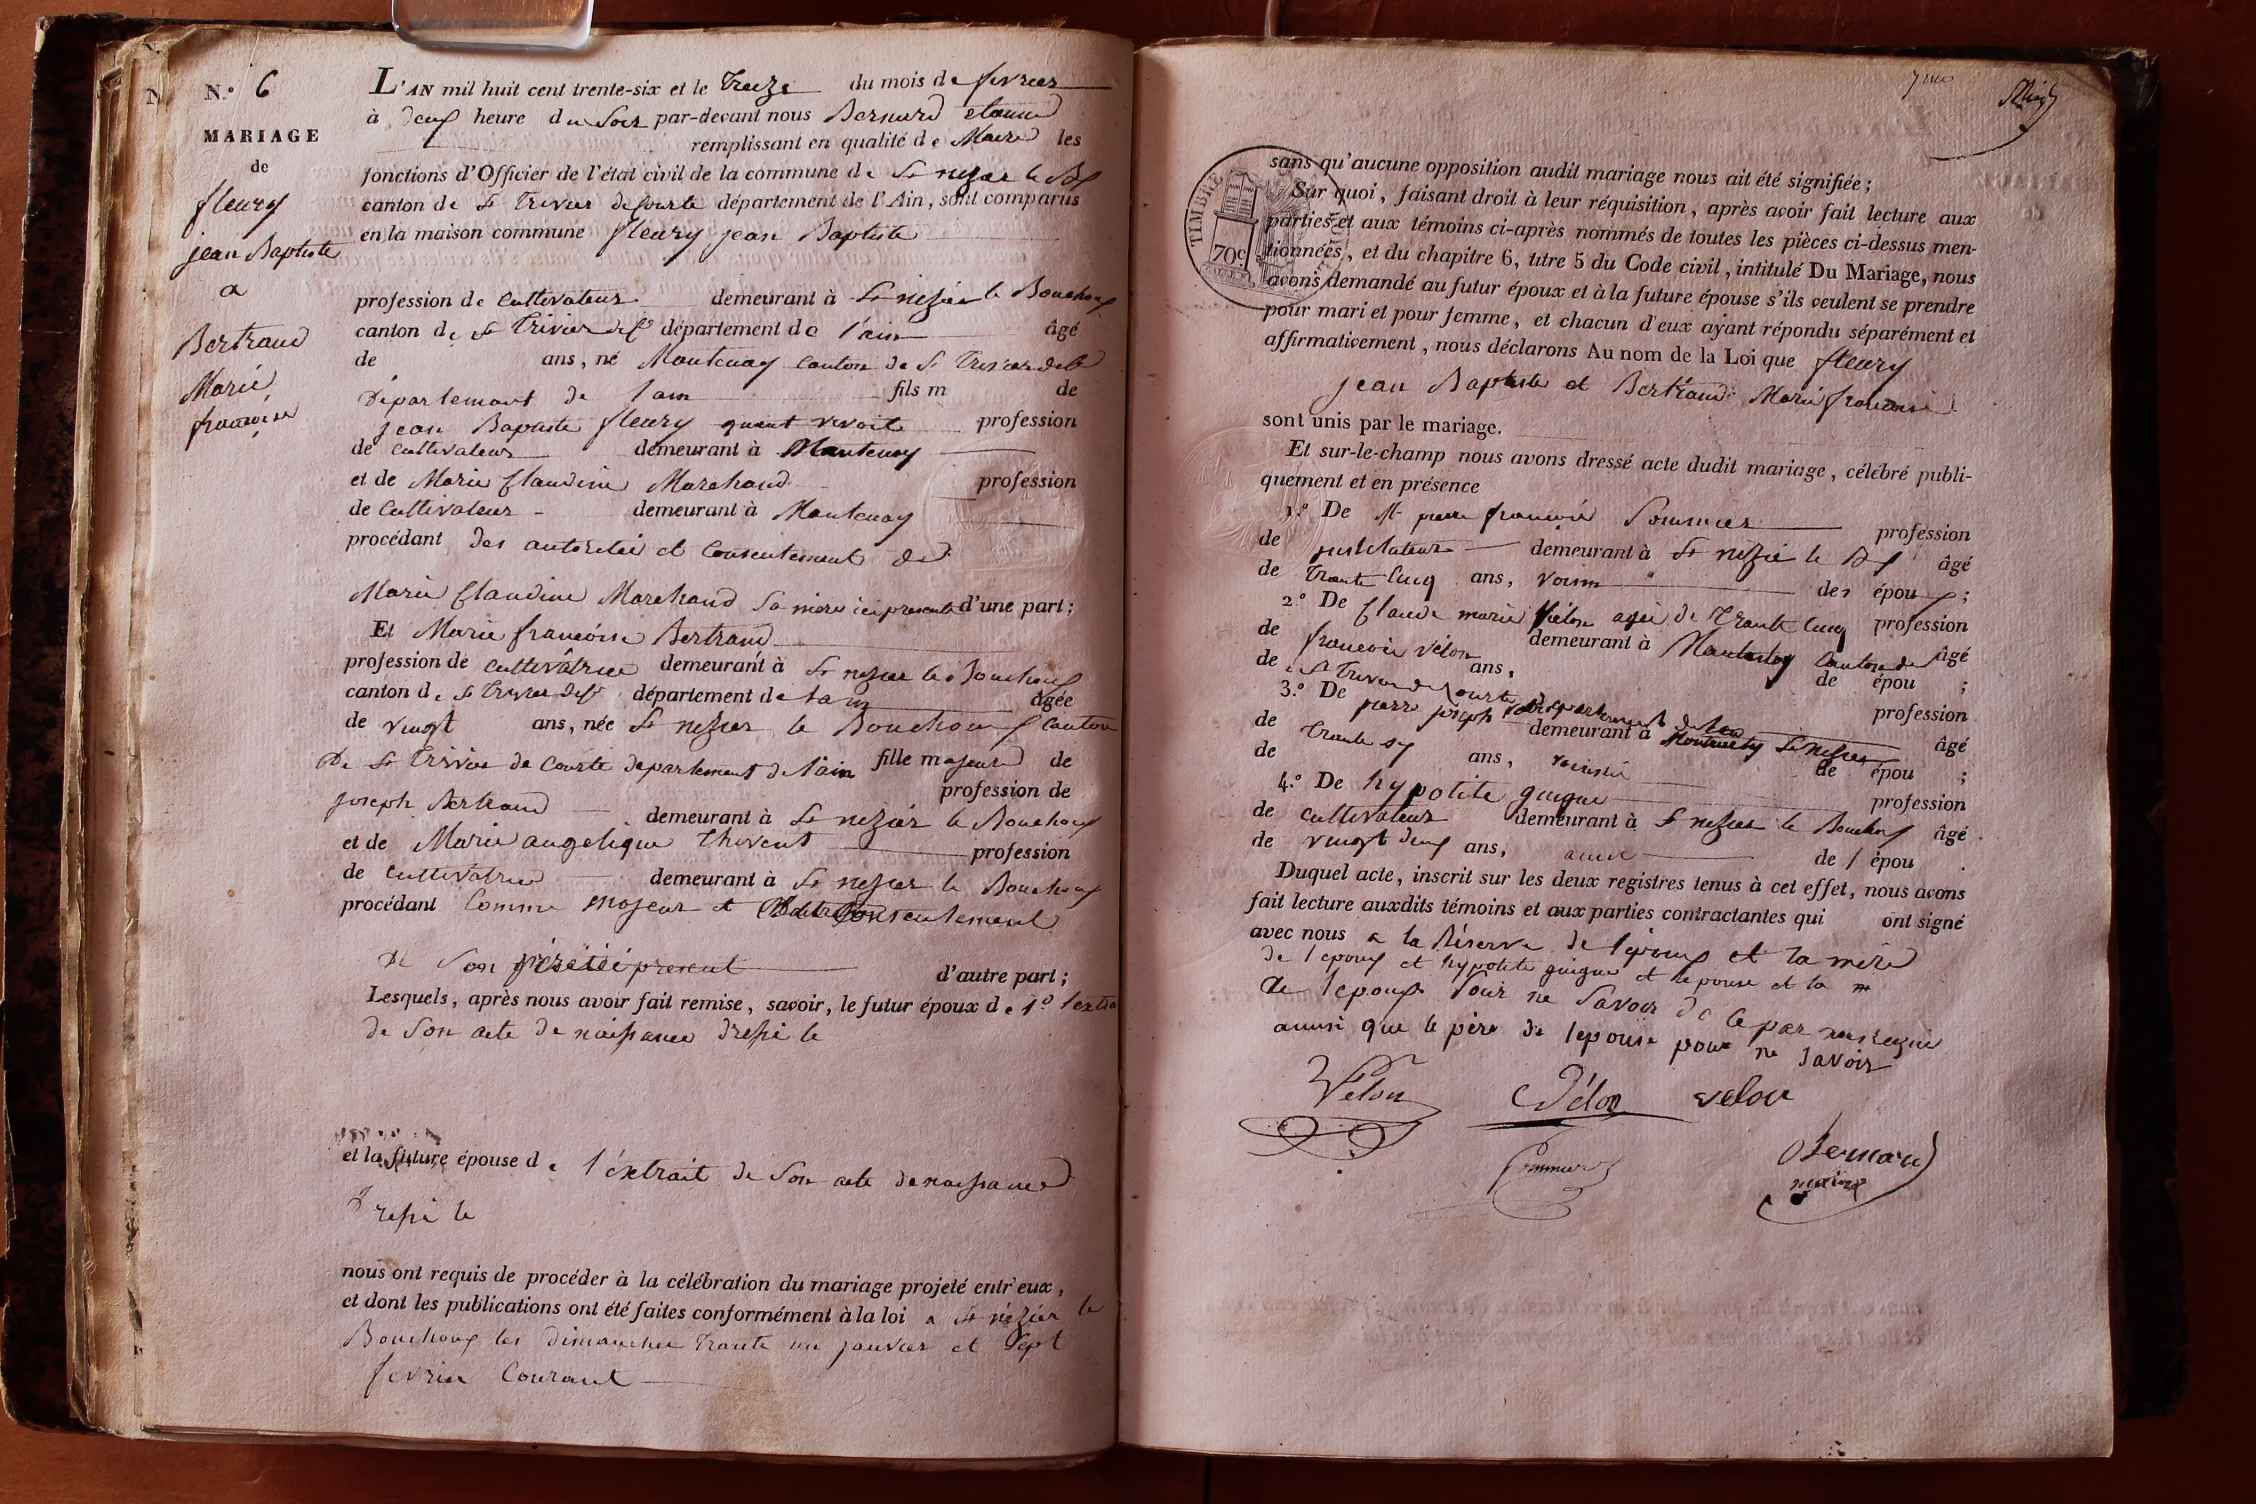 N.º 6
MARIAGE
de
fleury
jean Baptiste
a
Bertrand
Marie
francoise
L'AN mil huit cent trente-six et le treize du mois de fevrier
à deux heure du Soir par-devant nous Bernard etienne
remplissant en qualité de Maire les
fonctions d'Officier de l'état civil de la commune de St nezier le Bx
canton de St Trivier de Courte département de l'Ain, sont comparus
en la maison commune fleury jean Baptiste
profession de Cultivateur demeurant à St nezier le Bouchoux
canton de St Trivier de Ct département de l'ain âgé
de ans, né Mantenay Canton de St Trivier de Ct
Département de lain fils m de
jean Baptiste fleury quant vivoit profession
de Cultivateur demeurant à Mantenay
et de Marie Claudine Marchand profession
de Cultivateur demeurant à Mantenay
procédant des autorité et Consentement de
Marie Claudine Marchand Sa mere ici presente d'une part;
Et Marie francoise Bertrand
profession de Cultivâtrice demeurant à St nezier le Bouchoux
canton de St Trivier de Ct département de lain âgée
de vingt ans, née St nezier le Bouchoux Canton
De St Trivier de Courte departement de l'ain fille majeure de
profession de
joseph Bertrand demeurant à St nezier le Bouchoux
et de Marie angelique thevent profession
de Cultivâtrice demeurant à St nezier le Bouchoux
procédant Comme majeur et Consentement
De Son père ici present d'autre part;
Lesquels, après nous avoir fait remise, savoir, le futur époux de 1º lextrait
de Son acte de naissance Dressé le
et la future épouse de l'extrait de Son acte de naissance
Dressé le
nous ont requis de procéder à la célébration du mariage projeté entr'eux,
et dont les publications ont été faites conformément à la loi a St nézier le
Bouchoux les dimanches trante un janvier et Sept
fevrier Courant
sans qu'aucune opposition audit mariage nous ait été signifiée;
Sur quoi, faisant droit à leur réquisition, après avoir fait lecture aux
parties et aux témoins ci-après nommés de toutes les pièces ci-dessus men-
tionnées, et du chapitre 6, titre 5 du Code civil, intitulé Du Mariage, nous
avons demandé au futur époux et à la future épouse s'ils veulent se prendre
pour mari et pour femme, et chacun d'eux ayant répondu séparément et
affirmativement, nous déclarons Au nom de la Loi que fleury
jean Baptiste et Bertrand Marie francoise
sont unis par le mariage.
TIMBRE
70c
Et sur-le-champ nous avons dressé acte dudit mariage, célébré publi-
quement et en présence
1.º De M pierre francois Sommier profession
de demeurant à St nezié le Bx âgé
de trante Cinq ans, voisin des époux;
2.º De Claude marie Vélon agée de Trante Cinq profession
de francois Vélon demeurant à Mantenay Canton de âgé
de St Trivier de Courte ans, de épou ;
3.º De pierre joseph departement de lain profession
de demeurant à St Nezier âgé
de Trante six ans, voisin de épou ;
4.º De hypolite guigue profession
de Cultivateur demeurant à St nezier le Bouchoux âgé
de vingt deux ans, amie de l épou .
Duquel acte, inscrit sur les deux registres tenus à cet effet, nous avons
fait lecture auxdits témoins et aux parties contractantes qui ont signé
avec nous a la Réserve de lépoux et la mère
de lepoux et hypolite guigue et lepouse et la m
de lepouse pour ne Savoir de Ce par nous requi
aunsi que le père de lepouse pour ne Savoir
Velon Vélon velon
Sommier
Bernard
maire